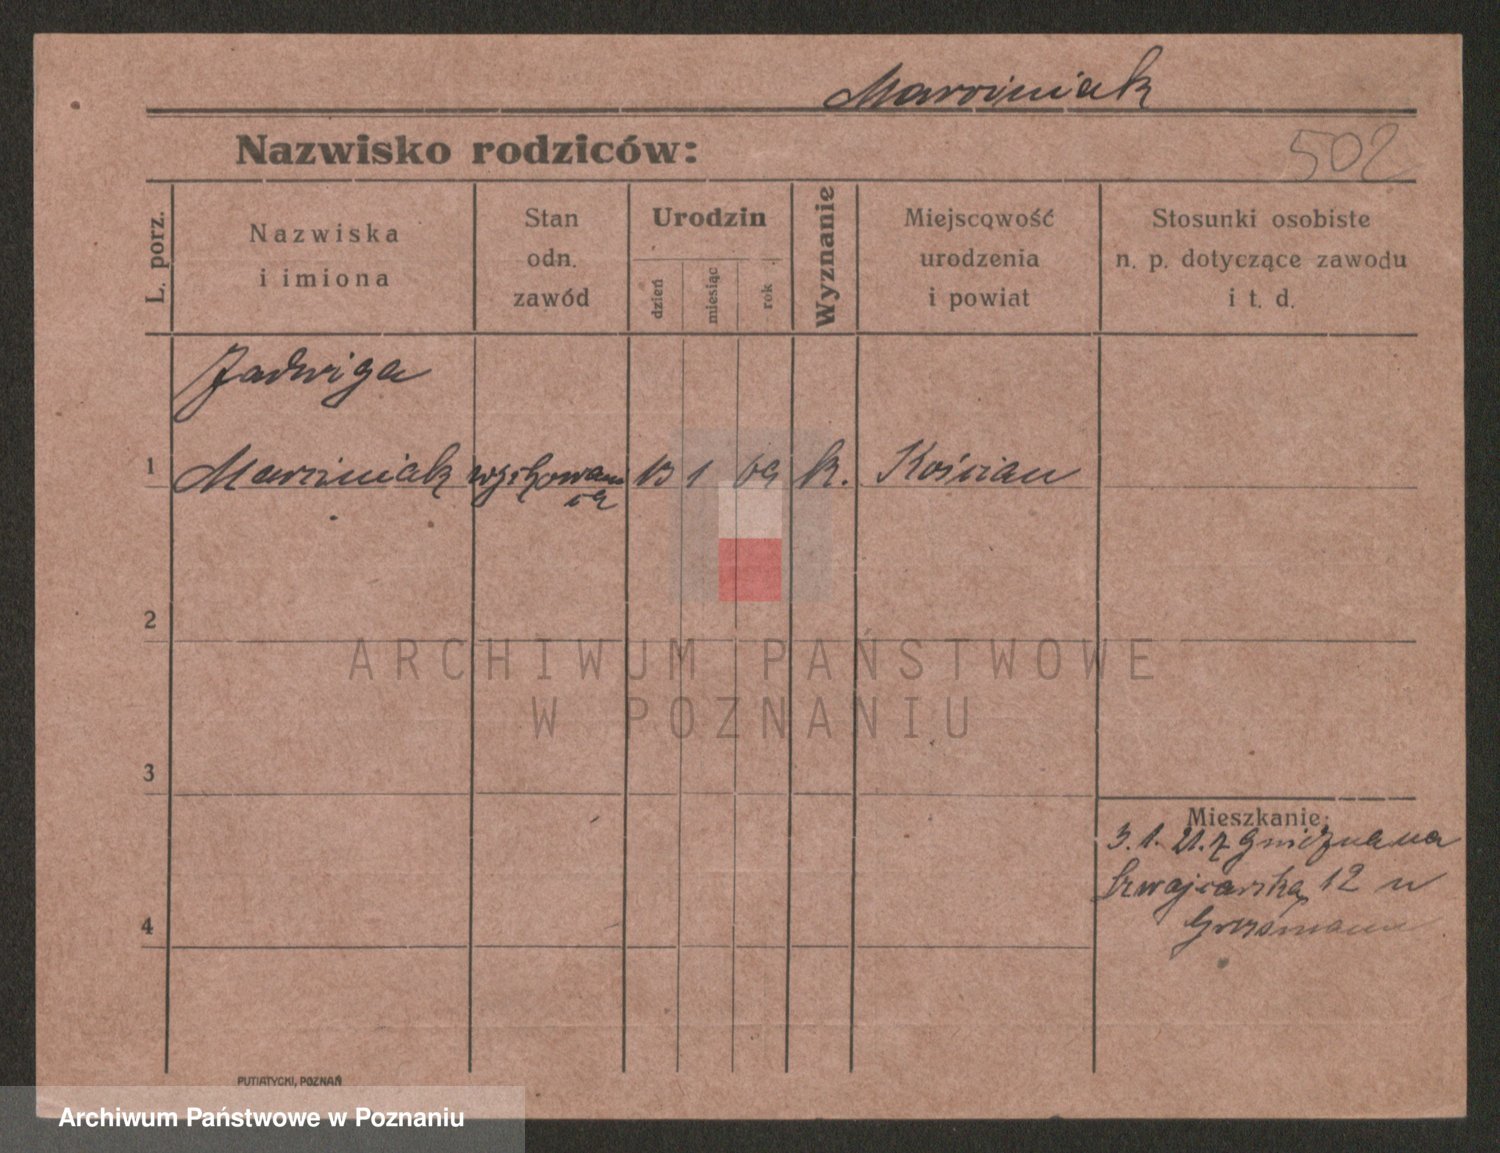 Marciniak
Nazwisko rodziców:
502
L. porz.
Nazwiska
i imiona
Stan
odn.
zawód
Urodzin
dzień
miesiąc
rok
Wyznanie
Miejscowość
urodzenia
i powiat
Stosunki osobiste
n. p. dotyczące zawodu
i t. d.
Jadwiga
1 Marciniak wychowawczyni 13 1 09 k. Kościan
2
ARCHIWUM PAŃSTWOWE
W POZNANIU
3
Mieszkanie:
3. 1. 21. z Gniezna na
Szwajcarska 12 u
4
PUTIATYCKI, POZNAŃ
Archiwum Państwowe w Poznaniu